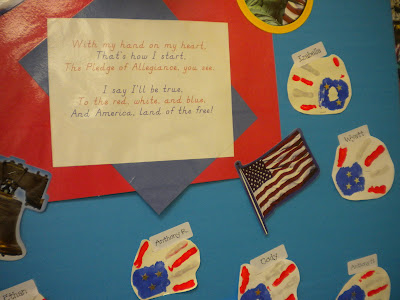 With my hand on my heart,
That's how I start,
The Pledge of Allegiance, you see.
I say I'll be true,
To the red, white, and blue,
And America, land of the free!
Isabella
Wyatt
Anthony R.
Cody